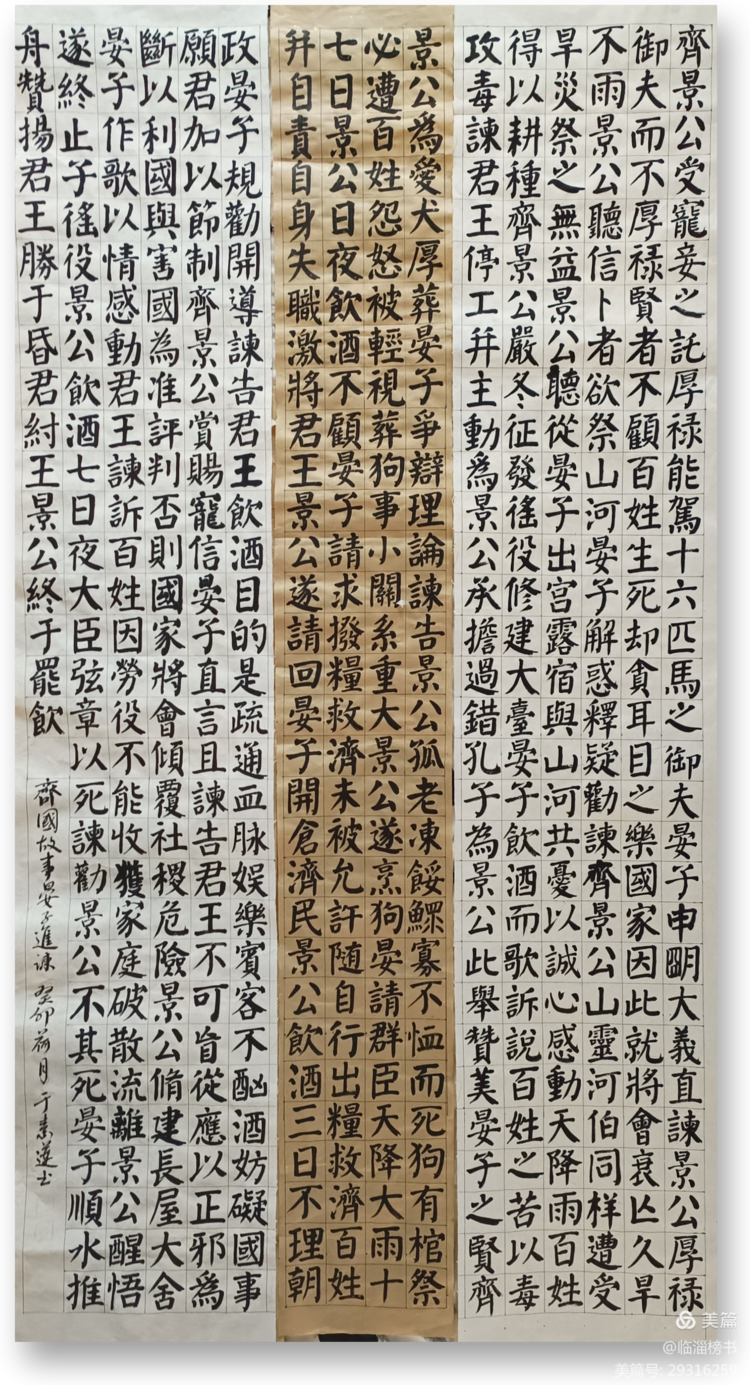 齊景公受寵妾之託厚禄能駕十六匹馬之御夫晏子申眀大義直諫景公厚禄
御夫而不厚禄賢者不顧百姓生死却貪耳目之樂國家因此就將會衰亡久旱
不雨景公聽信卜者欲祭山河晏子解惑釋疑勸諫齊景公山靈河伯同样遭受
旱災祭之無益景公聽從晏子出宫露宿與山河共憂以誠心感動天降雨百姓
得以耕種齊景公嚴冬征發徭役修建大臺晏子飲酒而歌訴說百姓之苦以毒
攻毒諫君王停工幷主動爲景公承擔過錯孔子為景公此舉贊美晏子之賢齊
景公爲愛犬厚葬晏子爭辯理論諫告景公孤老凍餒鰥寡不恤而死狗有棺祭
必遭百姓怨怒被輕視葬狗事小關系重大景公遂烹狗晏請群臣天降大雨十
七日景公日夜飲酒不顧晏子請求撥糧救濟未被允許随自行出糧救濟百姓
幷自責自身失職激將君王景公遂請回晏子開倉濟民景公飲酒三日不理朝
政晏子規勸開導諫告君王飲酒目的是疏通血脉娱樂賓客不酗酒妨礙國事
願君加以節制齊景公賞賜寵信晏子直言且諫告君王不可盲從應以正邪爲
斷以利國與害國為准評判否則國家將會傾覆社稷危險景公脩建長屋大舍
晏子作歌以情感動君王諫訴百姓因勞役不能收獲家庭破散流離景公醒悟
遂終止子徭役景公飲酒七日夜大臣弦章以死諫勸景公不其死晏子順水推
舟贊揚君王勝于昏君紂王景公終于罷飲
齊國故事晏子進諫 癸卯荷月 于素蓮书
美篇
@临淄榜书
美篇号: 29316258